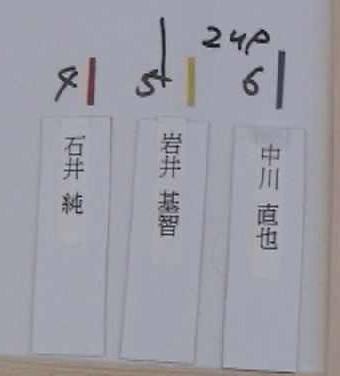 2up
4
5
6
石井 純
岩井 基智
中川 直也